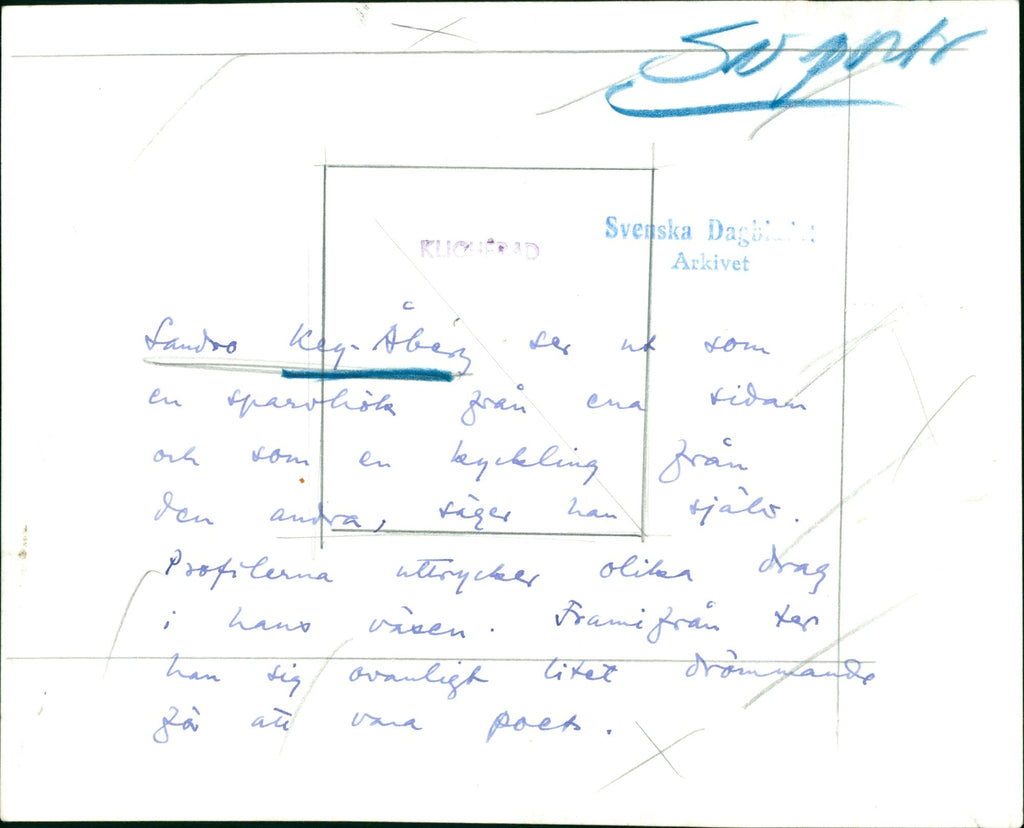 Sv portr
Svenska Dagbladet
KLICHERAD
Arkivet
Sandro Key-Åberg ser ut som
en sparvhök från ena sidan
och som en kyckling från
den andra, säger han själv.
Profilerna uttrycker olika drag
i hans väsen. Framifrån ter
han sig ovanligt litet drömmande
för att vara poet.